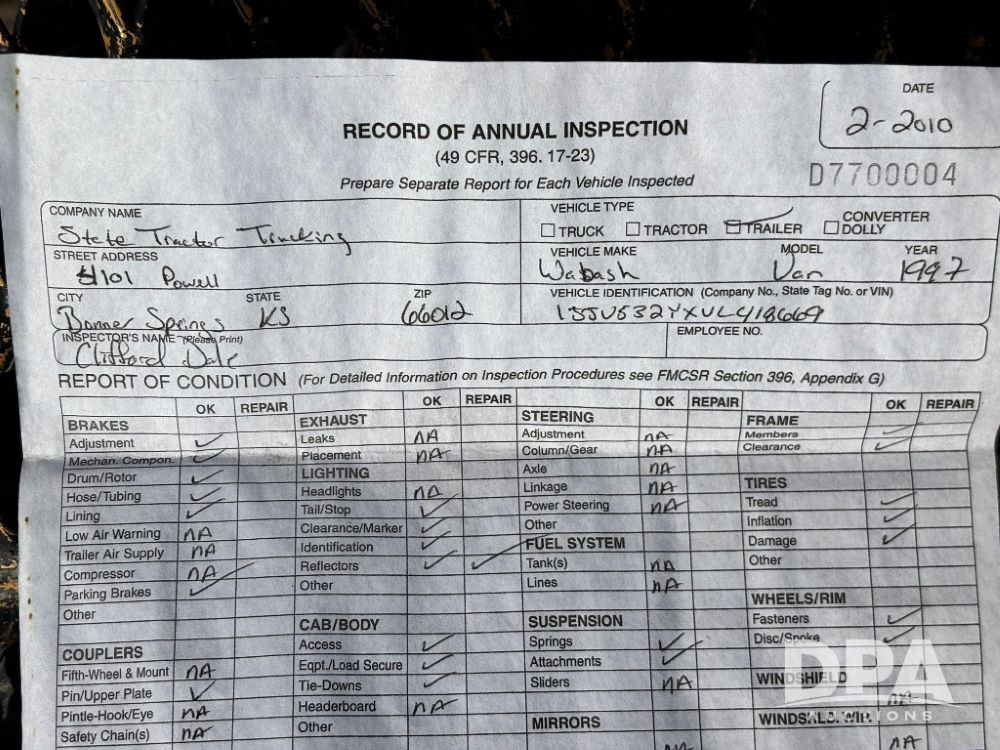 DATE
2-2010
RECORD OF ANNUAL INSPECTION
(49 CFR, 396. 17-23)
D7700004
Prepare Separate Report for Each Vehicle Inspected
COMPANY NAME
State Tractor Trucking
VEHICLE TYPE
TRUCK TRACTOR TRAILER CONVERTER DOLLY
STREET ADDRESS
4101 Powell
VEHICLE MAKE MODEL YEAR
Wabash Van 1997
CITY STATE ZIP
Bonner Springs KS 66012
VEHICLE IDENTIFICATION (Company No., State Tag No. or VIN)
1JJV532YXVL418669
INSPECTOR'S NAME (Please Print)
Clifford Dale
EMPLOYEE NO.
REPORT OF CONDITION (For Detailed Information on Inspection Procedures see FMCSR Section 396, Appendix G)
OK REPAIR OK REPAIR OK REPAIR OK REPAIR
BRAKES
Adjustment ✓
Mechan. Compon. ✓
Drum/Rotor ✓
Hose/Tubing ✓
Lining ✓
Low Air Warning NA
Trailer Air Supply NA
Compressor NA
Parking Brakes ✓
Other
COUPLERS
Fifth-Wheel & Mount NA
Pin/Upper Plate ✓
Pintle-Hook/Eye NA
Safety Chain(s) NA
EXHAUST
Leaks NA
Placement NA
LIGHTING
Headlights NA
Tail/Stop ✓
Clearance/Marker ✓
Identification ✓
Reflectors ✓ ✓
Other
CAB/BODY
Access ✓
Eqpt./Load Secure ✓
Tie-Downs ✓
Headerboard NA
Other
STEERING
Adjustment NA
Column/Gear NA
Axle NA
Linkage NA
Power Steering NA
Other
FUEL SYSTEM
Tank(s) NA
Lines NA
SUSPENSION
Springs ✓
Attachments ✓
Sliders NA
MIRRORS
NA
FRAME
Members ✓
Clearance ✓
TIRES
Tread ✓
Inflation ✓
Damage ✓
Other
WHEELS/RIM
Fasteners ✓
Disc/Spoke ✓
WINDSHIELD
NA
WINDSHLD. WIP.
NA
DPA
AUCTIONS